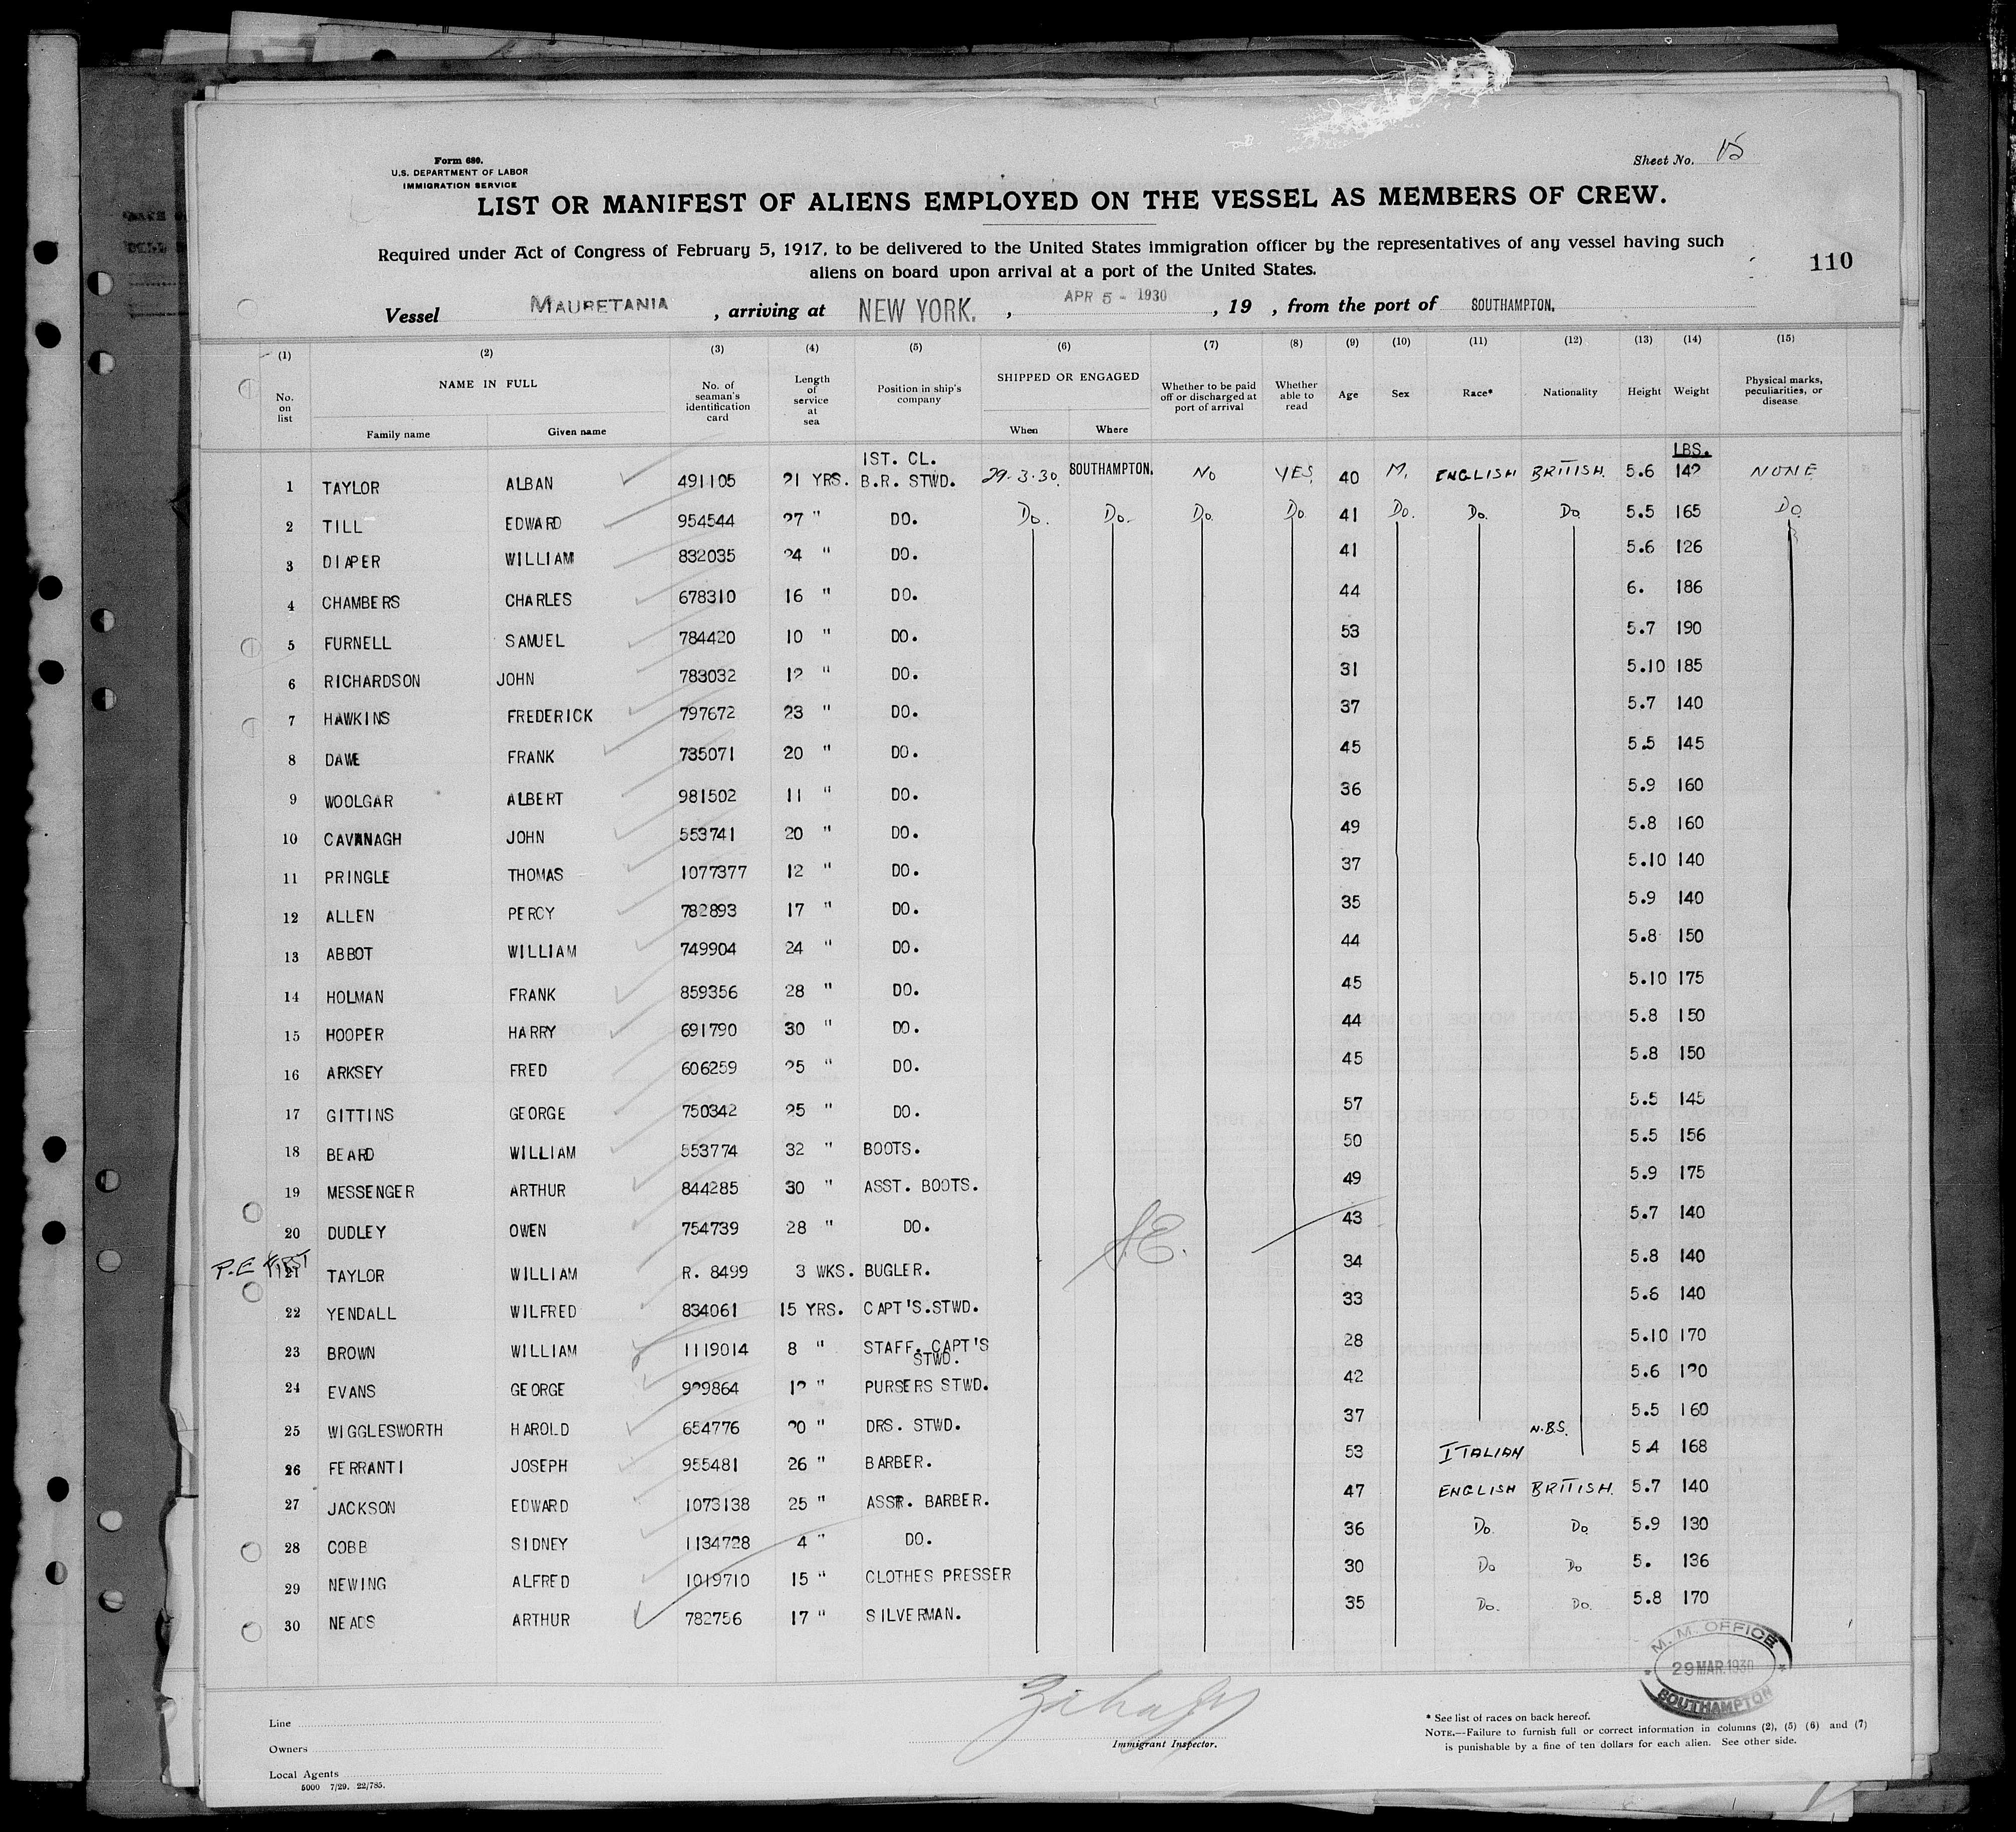 Form 680.
U.S. DEPARTMENT OF LABOR
IMMIGRATION SERVICE
Sheet No. 15
LIST OR MANIFEST OF ALIENS EMPLOYED ON THE VESSEL AS MEMBERS OF CREW.
Required under Act of Congress of February 5, 1917, to be delivered to the United States immigration officer by the representatives of any vessel having such
aliens on board upon arrival at a port of the United States.
110
Vessel MAURETANIA , arriving at NEW YORK. , APR 5 - 1930 , 19 , from the port of SOUTHAMPTON.
(1) (2) (3) (4) (5) (6) (7) (8) (9) (10) (11) (12) (13) (14) (15)
No. on list NAME IN FULL No. of seaman's identification card Length of service at sea Position in ship's company SHIPPED OR ENGAGED Whether to be paid off or discharged at port of arrival Whether able to read Age Sex Race* Nationality Height Weight Physical marks, peculiarities, or disease
Family name Given name When Where
LBS.
1 TAYLOR ALBAN 491105 21 YRS. 1ST. CL. B.R. STWD. 29.3.30. SOUTHAMPTON. NO YES 40 M. ENGLISH BRITISH. 5.6 142 NONE
2 TILL EDWARD 954544 27 " DO. Do. Do. Do. Do 41 Do. Do. Do. 5.5 165 Do.
3 DIAPER WILLIAM 832035 24 " DO. 41 5.6 126
4 CHAMBERS CHARLES 678310 16 " DO. 44 6. 186
5 FURNELL SAMUEL 784420 10 " DO. 53 5.7 190
6 RICHARDSON JOHN 783032 12 " DO. 31 5.10 185
7 HAWKINS FREDERICK 797672 23 " DO. 37 5.7 140
8 DAWE FRANK 735071 20 " DO. 45 5.5 145
9 WOOLGAR ALBERT 981502 11 " DO. 36 5.9 160
10 CAVANAGH JOHN 553741 20 " DO. 49 5.8 160
11 PRINGLE THOMAS 1077377 12 " DO. 37 5.10 140
12 ALLEN PERCY 782893 17 " DO. 35 5.9 140
13 ABBOT WILLIAM 749904 24 " DO. 44 5.8 150
14 HOLMAN FRANK 859356 28 " DO. 45 5.10 175
15 HOOPER HARRY 691790 30 " DO. 44 5.8 150
16 ARKSEY FRED 606259 25 " DO. 45 5.8 150
17 GITTINS GEORGE 750342 25 " DO. 57 5.5 145
18 BEARD WILLIAM 553774 32 " BOOTS. 50 5.5 156
19 MESSENGER ARTHUR 844285 30 " ASST. BOOTS. 49 5.9 175
20 DUDLEY OWEN 754739 28 " DO. 43 5.7 140
P.E FIRST
21 TAYLOR WILLIAM R. 8499 3 WKS. BUGLER. 34 5.8 140
22 YENDALL WILFRED 834061 15 YRS. CAPT'S.STWD. 33 5.6 140
23 BROWN WILLIAM 1119014 8 " STAFF. CAPT'S STWD. 28 5.10 170
24 EVANS GEORGE 929864 12 " PURSERS STWD. 42 5.6 120
25 WIGGLESWORTH HAROLD 654776 20 " DRS. STWD. 37 5.5 160
26 FERRANTI JOSEPH 955481 26 " BARBER. 53 ITALIAN N.B.S. 5.4 168
27 JACKSON EDWARD 1073138 25 " ASST. BARBER. 47 ENGLISH BRITISH. 5.7 140
28 COBB SIDNEY 1134728 4 " DO. 36 Do. Do. 5.9 130
29 NEWING ALFRED 1019710 15 " CLOTHES PRESSER 30 Do Do 5. 136
30 NEADS ARTHUR 782756 17 " SILVERMAN. 35 Do. Do. 5.8 170
M.M. OFFICE
29 MAR. 1930
SOUTHAMPTON
Line
Owners
Local Agents
5000 7/29. 22/785.
Immigrant Inspector.
* See list of races on back hereof.
NOTE.—Failure to furnish full or correct information in columns (2), (5) (6) and (7)
is punishable by a fine of ten dollars for each alien. See other side.